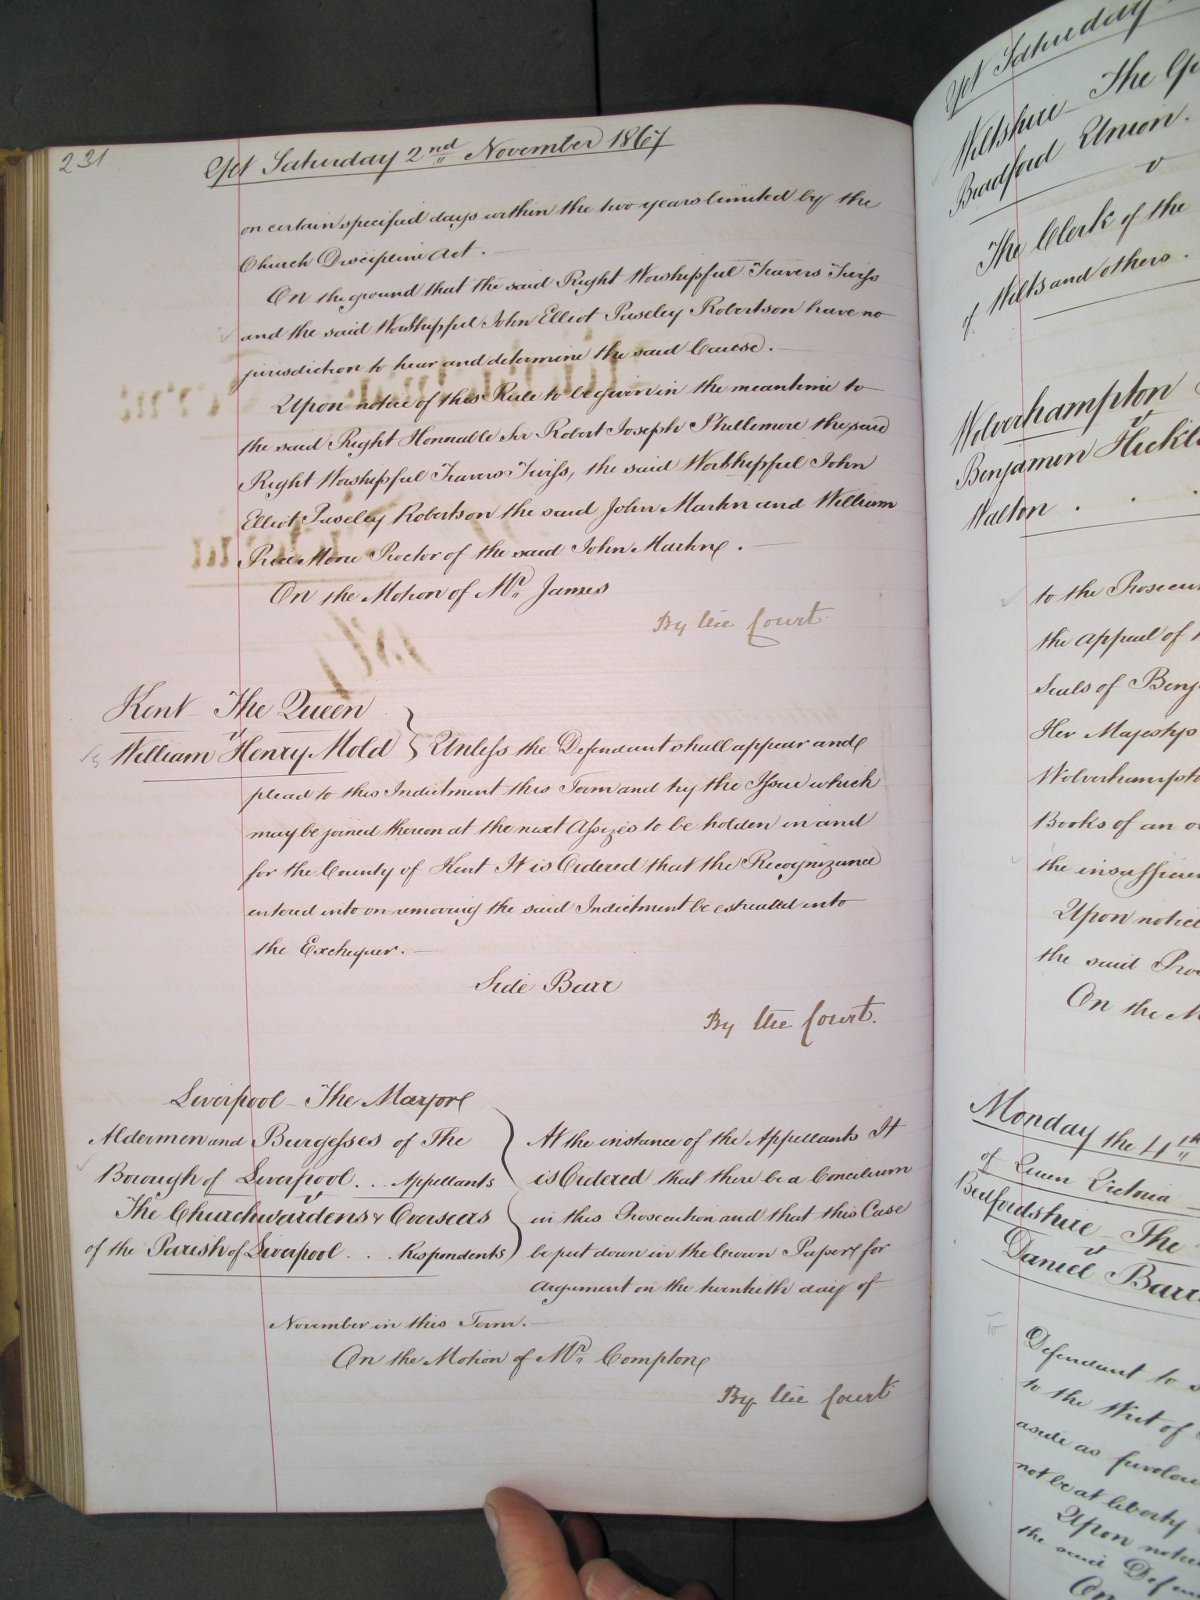 231
Yet Saturday 2nd November 1867
on certain specified days within the two years limited by the
Church Discipline Act.
On the ground that the said Right Worshipful Travers Twiss
and the said Worshipful John Elliot Paseley Robertson have no
jurisdiction to hear and determine the said Cause.
Upon notice of this Rule to be given in the meantime to
the said Right Honnable Sir Robert Joseph Phillimore the said
Right Worshipful Travers Twiss, the said Worshipful John
Elliot Paseley Robertson the said John Martin and William
Proctor of the said John Martin.
On the Motion of Mr James
By the Court
Kent The Queen
v
William Henry Mold } Unless the Defendant shall appear and
plead to this Indictment this Term and try the Issue which
may be joined thereon at the next Assizes to be holden in and
for the County of Kent It is Ordered that the Recognizance
entered into on removing the said Indictment be estreated into
the Exchequer.
Side Barr
By the Court.
Liverpool The Mayor
Aldermen and Burgesses of The
Borough of Liverpool ... Appellants
v
The Churchwardens & Overseers
of the Parish of Liverpool ... Respondents
At the instance of the Appellants It
is Ordered that there be a Concilium
in this Prosecution and that this Case
be put down in the Crown Paper for
Argument on the twentieth day of
November in this Term.
On the Motion of Mr Compton
By the Court
Yet Saturday
Wiltshire The
Bradford Union.
v
The Clerk of the
of Wilts and others.
Wolverhampton
v
Benjamin
Walton
to the
the appeal of
Seals of
Her Majestys
Books of an
the
Upon notice
the said
On the
Monday the 4th
of Queen Victoria
Bedfordshire The
v
Daniel
Defendant to
to the Writ of
aside as
not be at liberty
Upon notice
the said
On